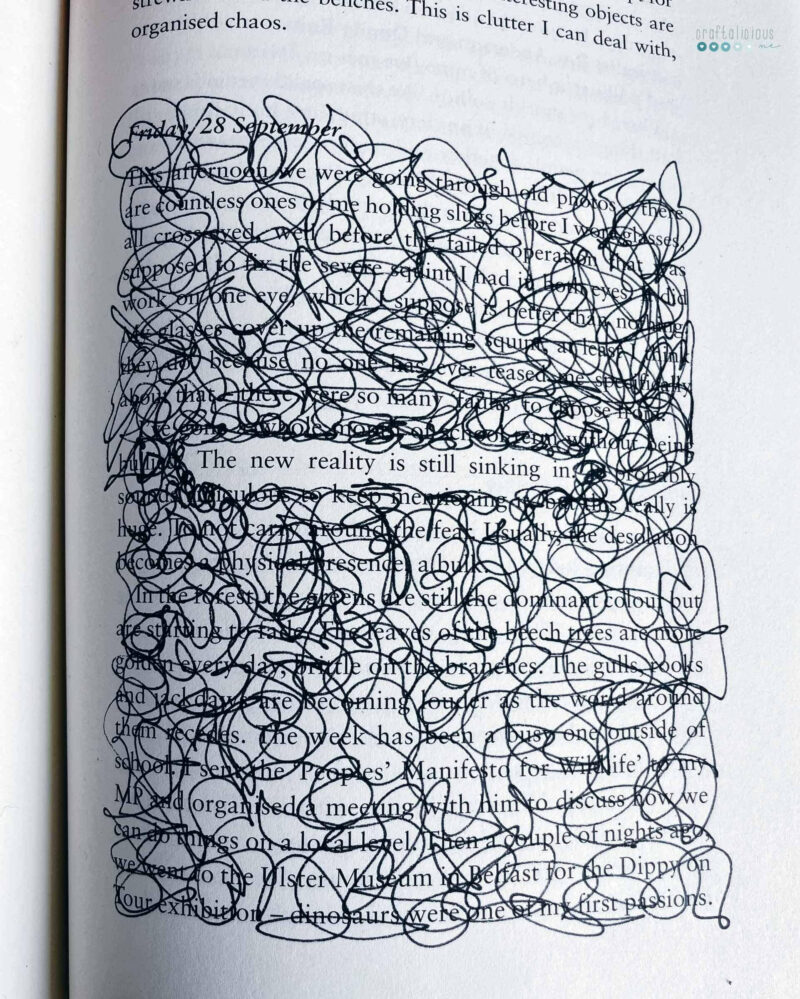 craftalicious
me
objects are
the benches. This is clutter I can deal with,
organised chaos.
Friday, 28 September
This afternoon we were going through old photos – there
are countless ones of me holding slugs before I wore glasses,
all cross-eyed, well before the failed operation that was
supposed to fix the severe squint I had in both eyes. It did
work on one eye, which I suppose is better than nothing.
glasses cover up the remaining squint, at least I think
they do, because no one has ever teased me specifically
about that – there were so many faults to choose from.
whole month of school term without being
The new reality is still sinking in. probably
sounds ridiculous to keep mentioning it but this really is
huge. To not carry around the fear. Usually the desolation
becomes a physical presence, a bulk.
In the forest, the greens are still the dominant colour but
are starting to fade. The leaves of the beech trees are more
golden every day, brittle on the branches. The gulls, rooks
and jackdaws are becoming louder as the world around
them recedes. The week has been a busy one outside of
school. I sent the 'Peoples' Manifesto for Wildlife' to my
MP and organised a meeting with him to discuss how we
can do things on a local level. Then a couple of nights ago,
we went to the Ulster Museum in Belfast for the Dippy on
Tour exhibition – dinosaurs were one of my first passions.